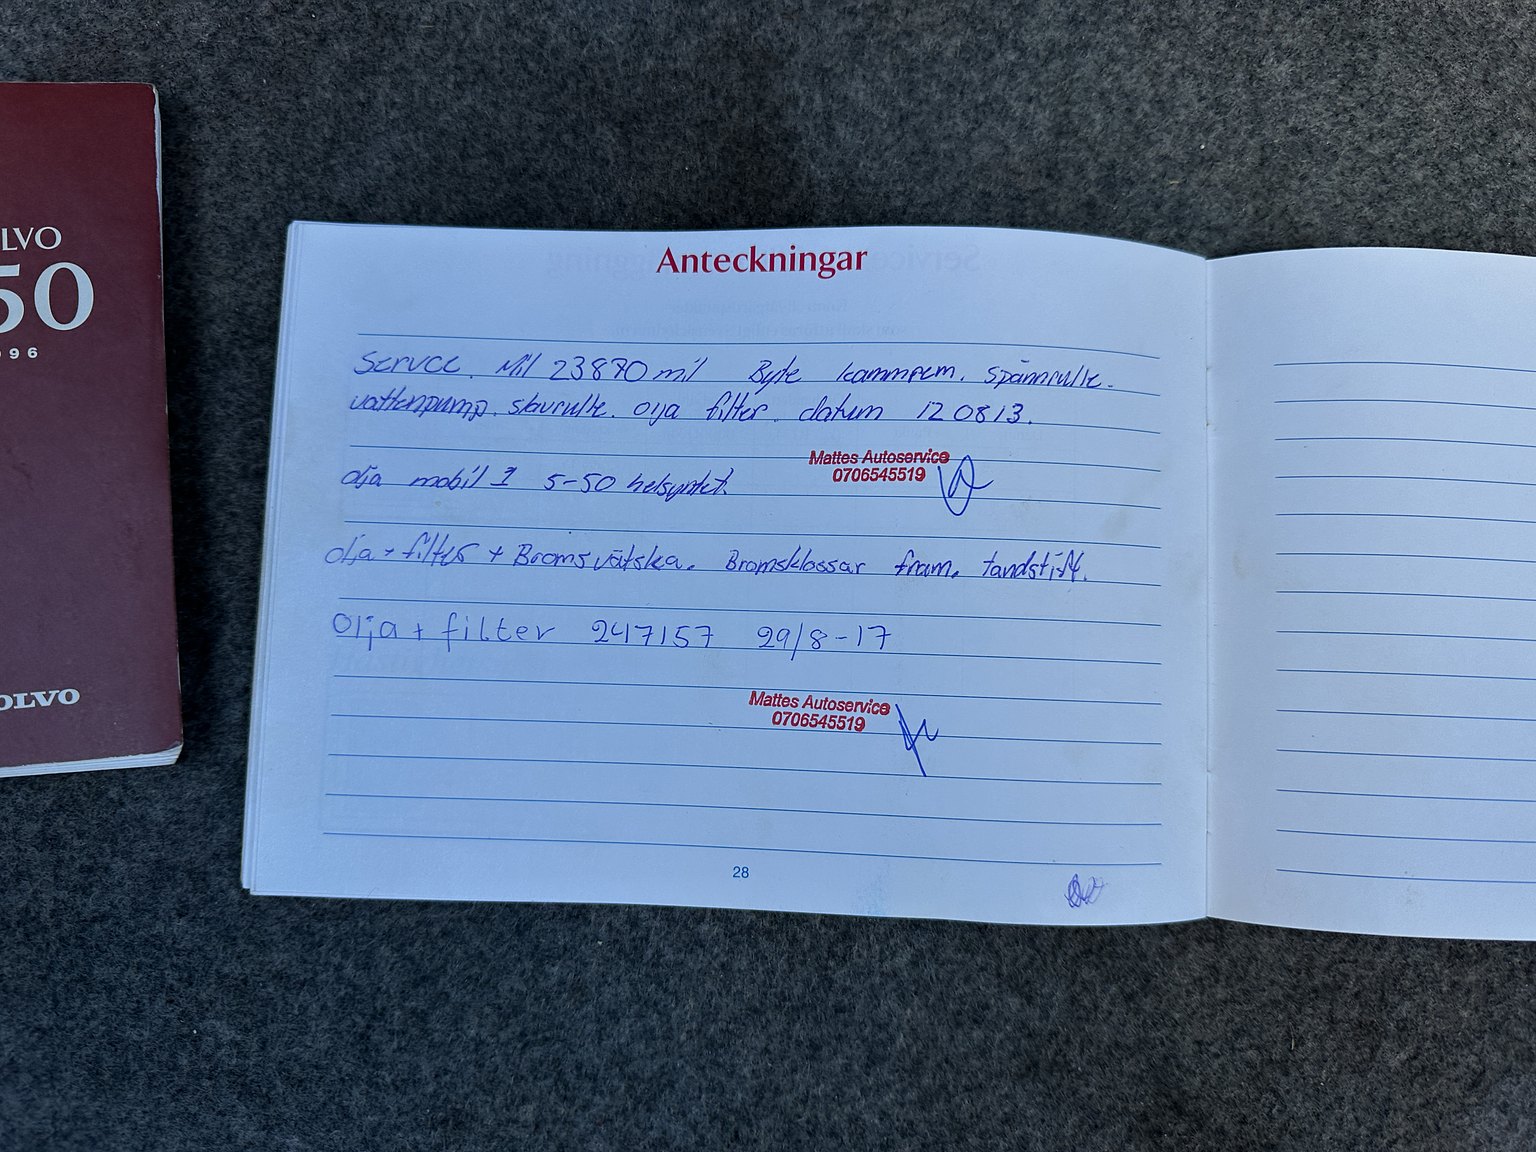 LVO
50
96
OLVO
Anteckningar
Service. Mil 23870 mil Byte kammrem. spännrulle.
vattenpump. styrrulle. olja filter. datum 120813.
Mattes Autoservice
0706545519
olja mobil 1 5-50 helsyntet.
olja + filter + Bromsvätska. Bromsklossar fram. tandstift.
olja + filter 247157 29/8-17
Mattes Autoservice
0706545519
28